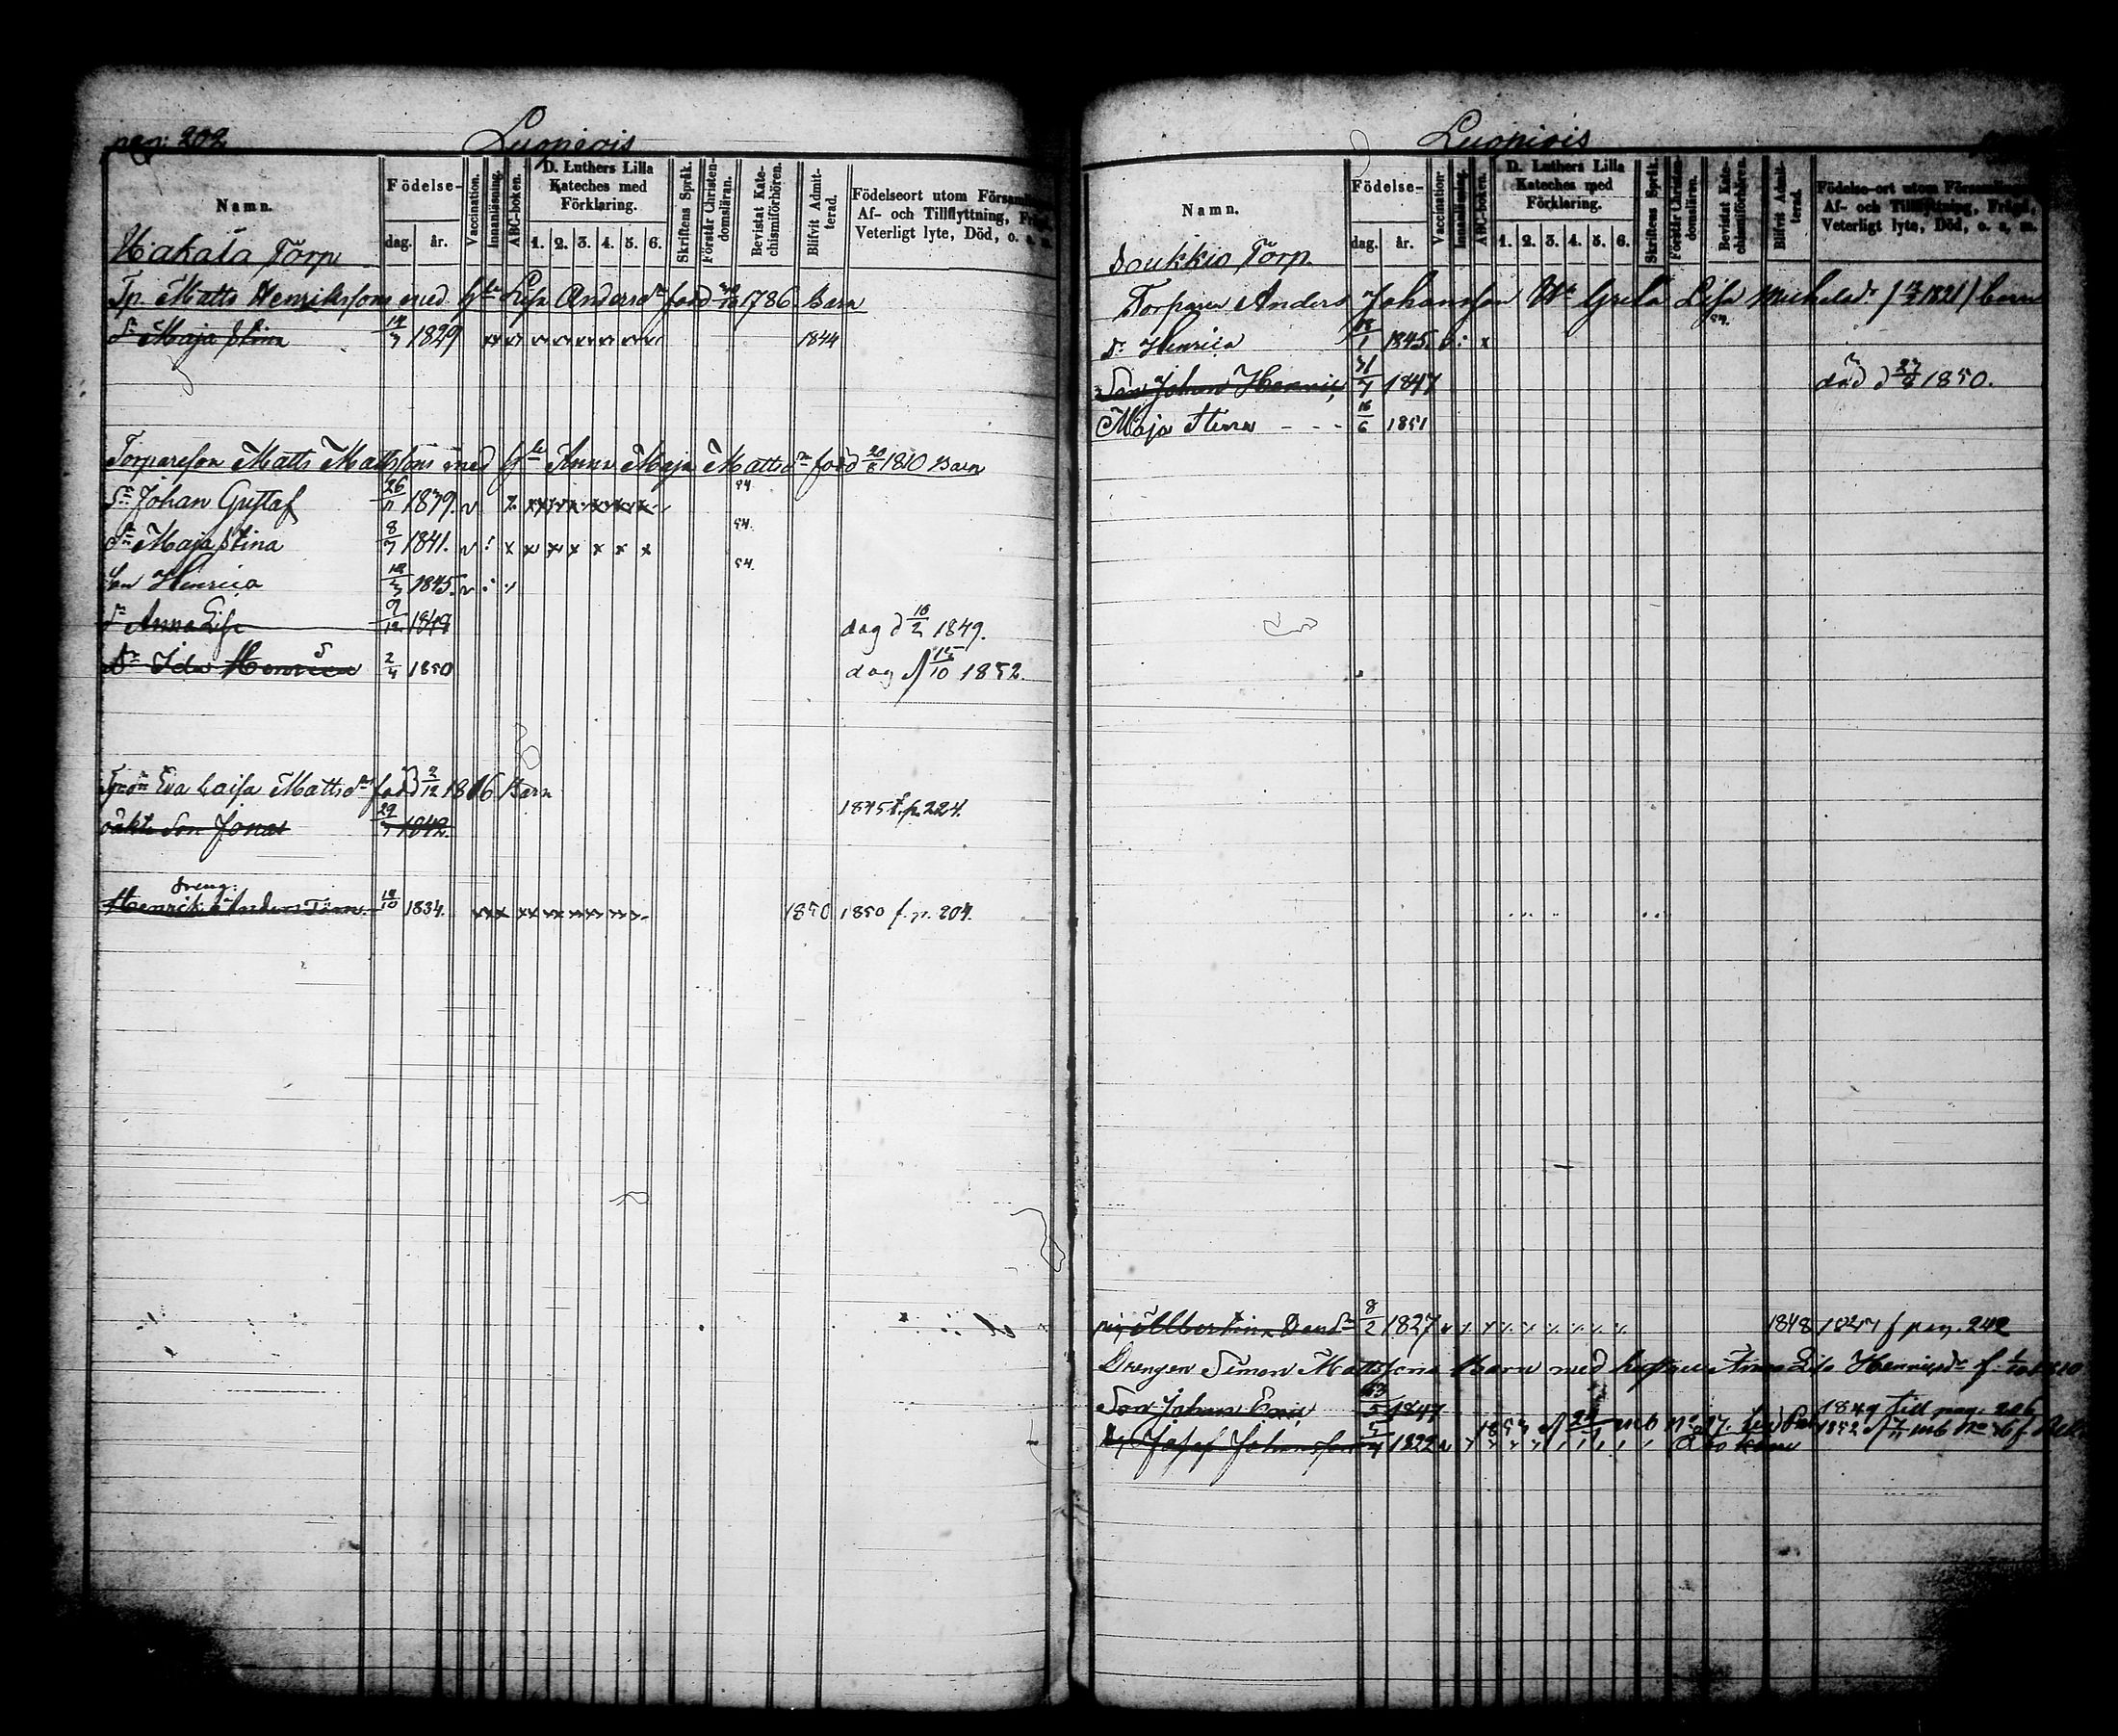 pag: 202
Luopiois
Namn.
Födelse-
dag. år.
Vaccination.
Innanläsning.
ABC-boken.
D. Luthers Lilla Kateches med Förklaring.
1. 2. 3. 4. 5. 6.
Skriftens Språk.
Förstår Christendomsläran.
Bevistat Katechismiförhören.
Blifvit Admitterad.
Födelseort utom Församlingen
Af- och Tillflyttning, Frägd,
Veterligt lyte, Död, o. s. m.
Hakala Torp
Tp. Matts Henriksson med h:u Lisa Andersdr född 1786. Barn
Dr Maja Stina 1829 1844
Torpareson Matts Mattsson med h:u Anna Maja Mattsdr född 20/8 1810 Barn
Sn Johan Gustaf 26/11 1839. 54
Dr Maja Stina 8/7 1841. 54.
Son Henrica 1845. 54.
Dr Anna Lisa 9/12 1848 dog d 16/2 1849.
Dr Ida Henrica 2/4 1850 dog d 15/10 1852.
Eva Caisa Mattsdr född 2/12 1816 Barn
oäkta Son Jonas 29/7 1842. 1845 f. p. 224.
Dreng:
Henrik Anders 1834. 1850 1850 f. p. 204.
Luopiois
Namn.
Födelse-
dag. år.
Vaccination.
Innanläsning.
ABC-boken.
D. Luthers Lilla Kateches med Förklaring.
1. 2. 3. 4. 5. 6.
Skriftens Språk.
Förstår Christendomsläran.
Bevistat Katechismiförhören.
Blifvit Admitterad.
Födelse-ort utom Församlingen
Af- och Tillflyttning, Frägd,
Veterligt lyte, Död, o. s. m.
Soukkio Torp.
Torparen Anders Johansson Hu Greta Lisa Michelsdr 1821 barn
Dr Henrica 1845.
Son Johan Henric 31/7 1847 död d 27/8 1850.
Maja Stina - - - 16/6 1851
pig Albertina Davdsdr 8/2 1827 1848 1847 f pag. 242
Drengen Simon Mattssons Barn med hustru Anna Lisa Henricsdr f.
Son Johan Eric 1847 1849 till pag. 206
Josef Johansson 1822 1852